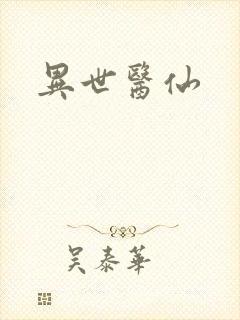 異世醫仙
吴泰華